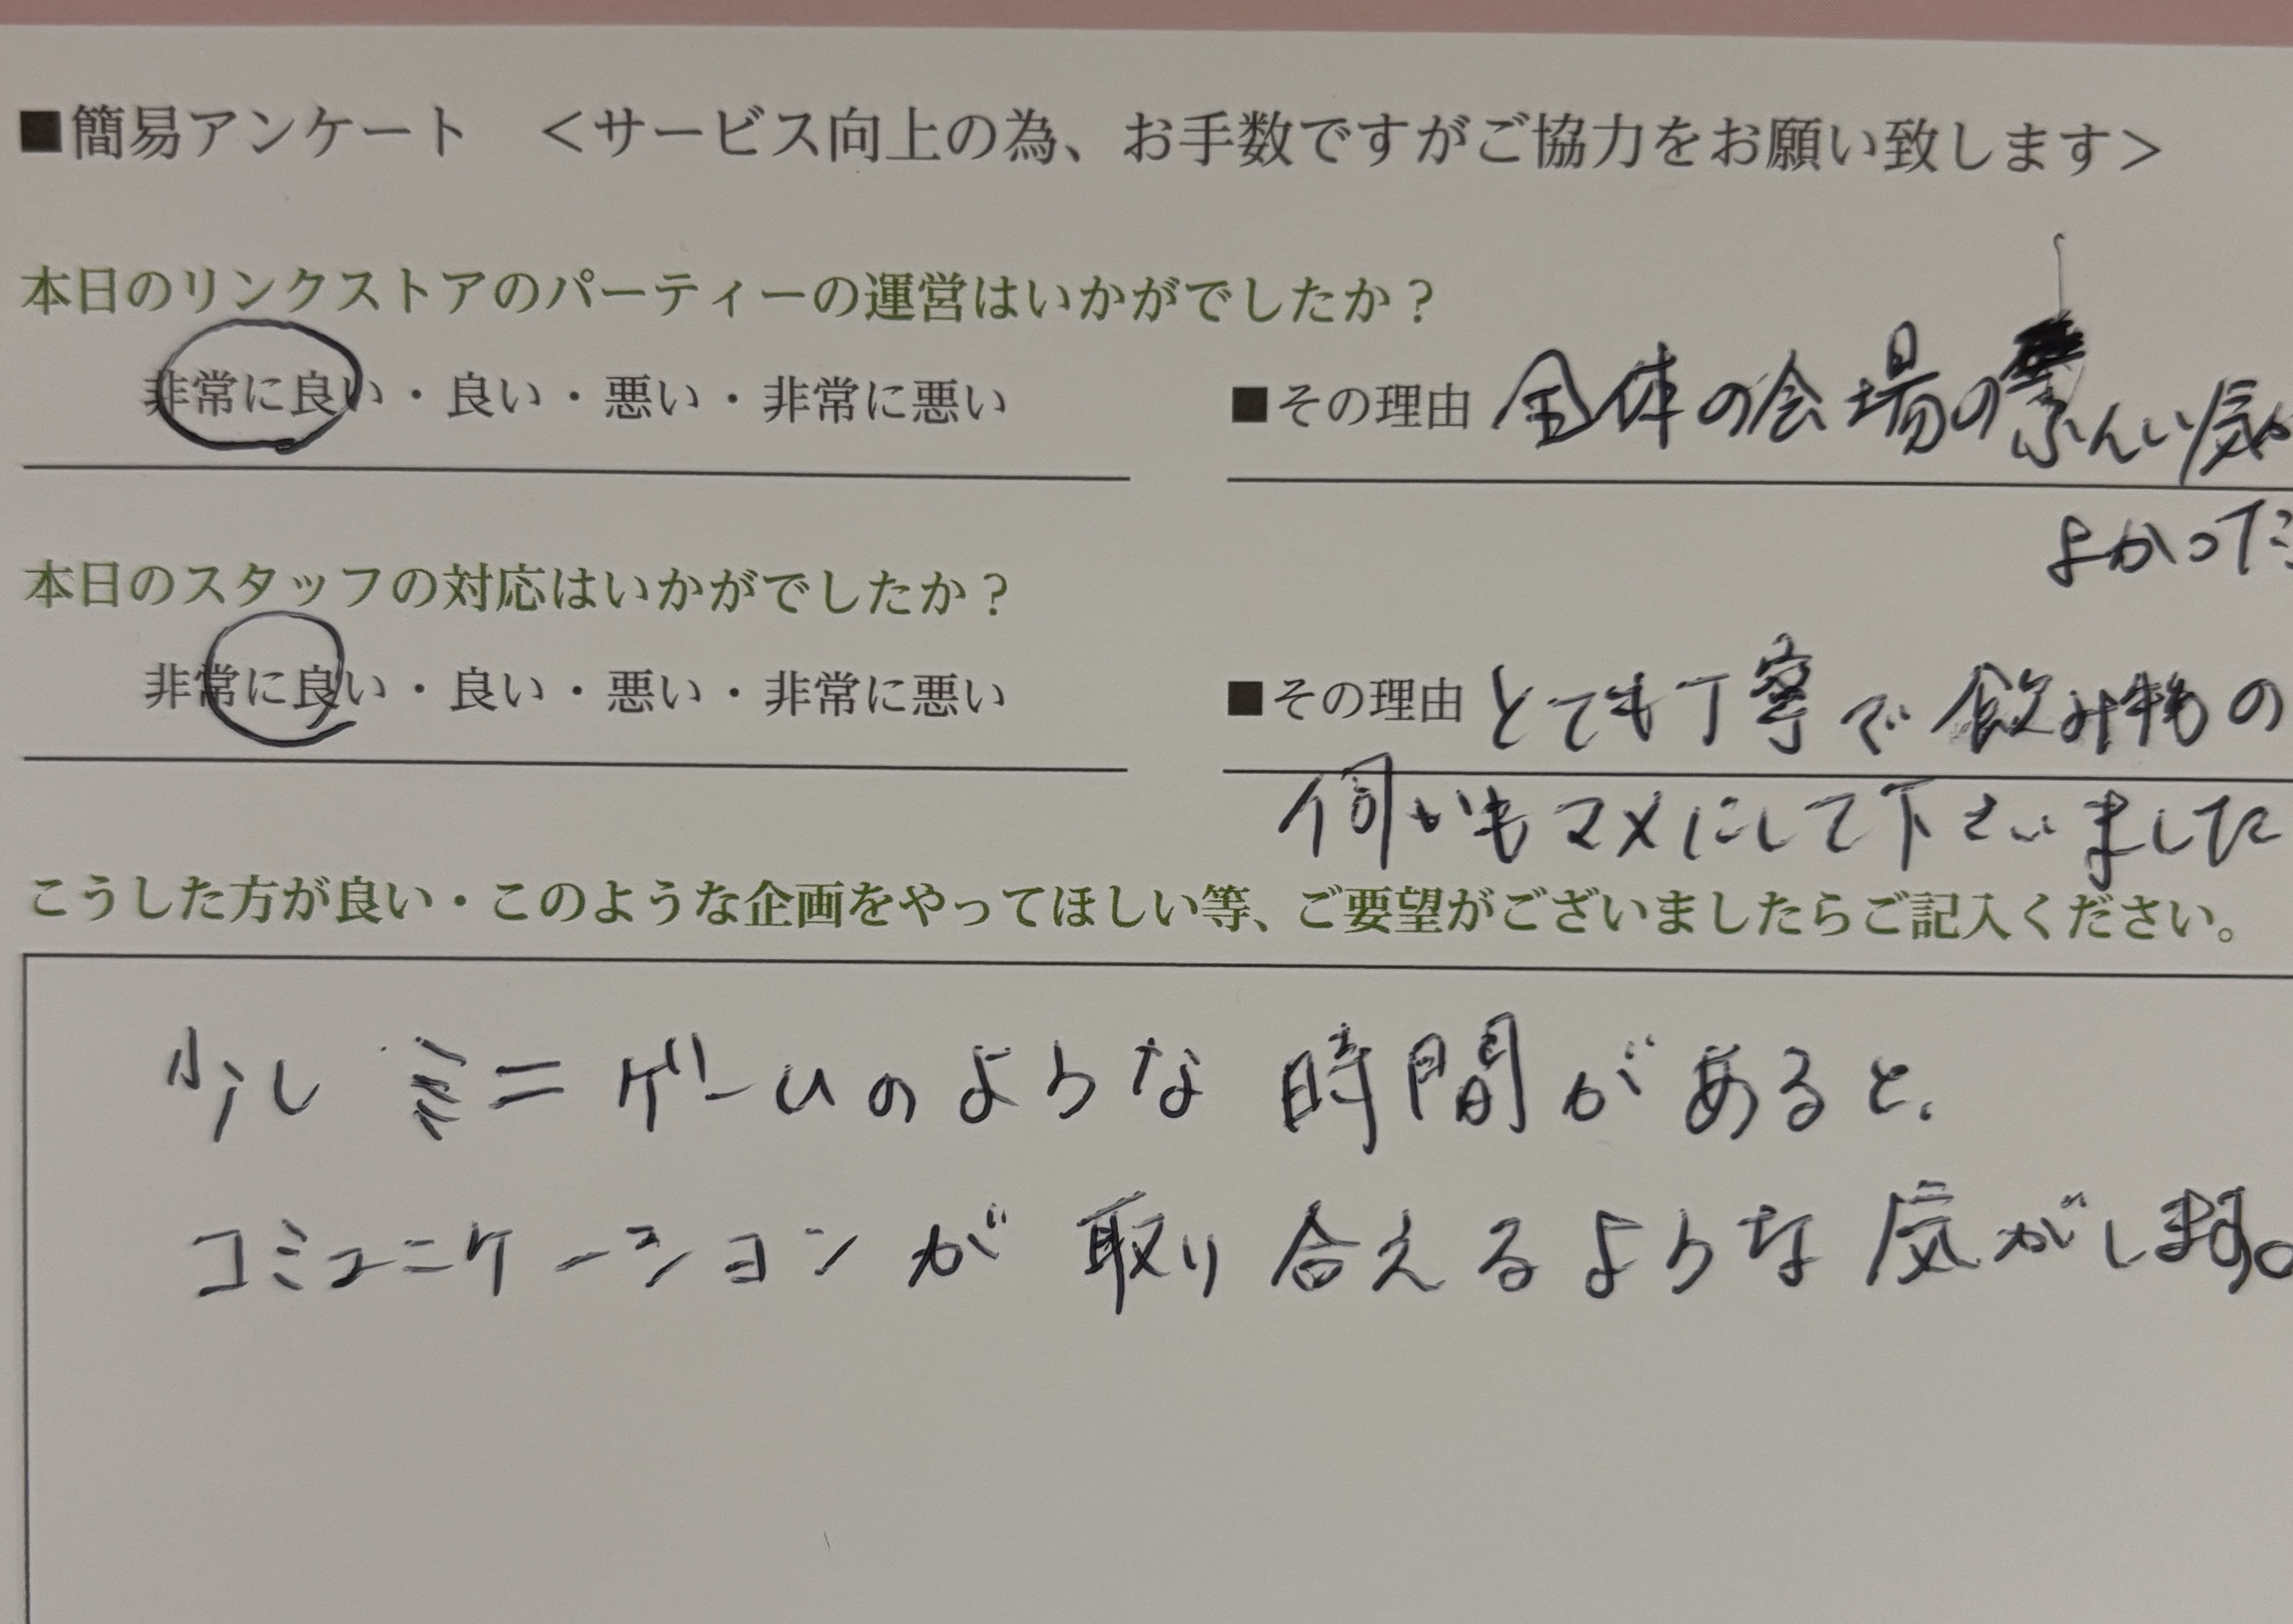 ■簡易アンケート　＜サービス向上の為、お手数ですがご協力をお願い致します＞
本日のリンクストアのパーティーの運営はいかがでしたか？
非常に良い・良い・悪い・非常に悪い
■その理由 全体の会場のふんい気
よかった
本日のスタッフの対応はいかがでしたか？
非常に良い・良い・悪い・非常に悪い
■その理由 とても丁寧で飲み物の
何かもマメにして下さいました
こうした方が良い・このような企画をやってほしい等、ご要望がございましたらご記入ください。
少し ミニゲームのような 時間があると、
コミュニケーションが取り合えるような気がします。